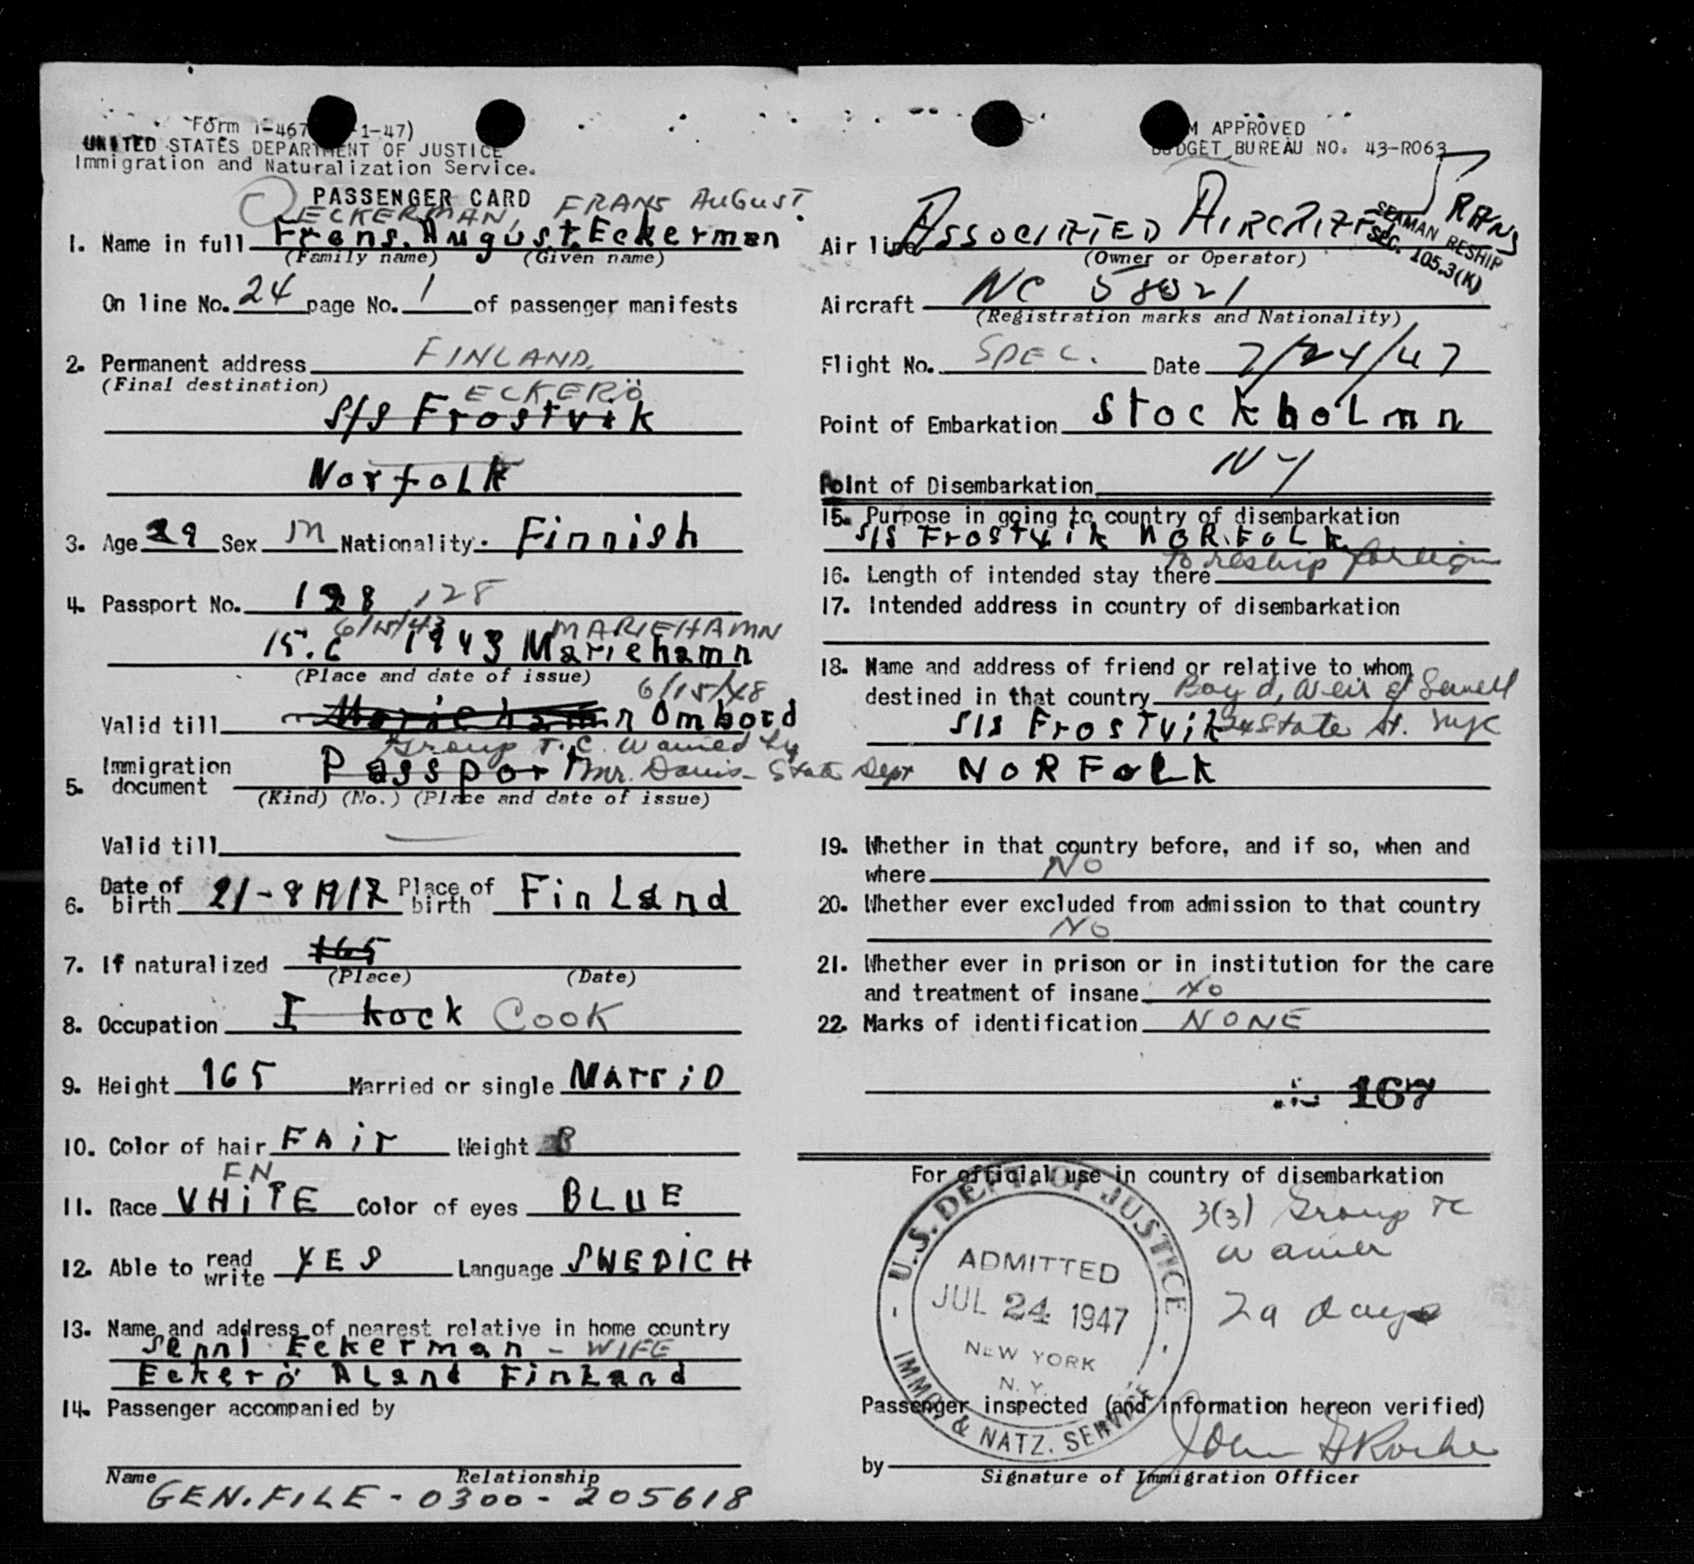 Form I-467 1-47)
UNITED STATES DEPARTMENT OF JUSTICE
Immigration and Naturalization Service.
PASSENGER CARD
ECKERMAN, FRANS AUGUST
1. Name in full Frans. August. Eckerman
(Family name) (Given name)
On line No. 24 page No. 1 of passenger manifests
2. Permanent address FINLAND.
(Final destination) ECKERÖ
S/S Frostvik
Norfolk
3. Age 29 Sex M Nationality. Finnish
4. Passport No. 128 128
6/15/43 MARIEHAMN
15.6 1943 Mariehamn
(Place and date of issue)
6/15/48
Valid till Mariehamn Ombord
Group T.C. waived by
5. Immigration document Passport Mr. Davis - State Dept
(Kind) (No.) (Place and date of issue)
Valid till
6. Date of birth 21-8 1917 Place of birth FinLand
7. If naturalized 165
(Place) (Date)
8. Occupation I kock COOK
9. Height 165 Married or single MArriD
10. Color of hair FAir Weight
FN
11. Race VHiTE Color of eyes BLUE
12. Able to read write YES Language SWEDICH
13. Name and address of nearest relative in home country
Senni Eckerman - WIFE
Eckerö ALand FinLand
14. Passenger accompanied by
Name Relationship
GEN. FILE - 0300 - 205618
M APPROVED
BUDGET BUREAU NO. 43-R063
Air line ASSOCIATED AIRCRAFT TRANS
(Owner or Operator)
SEAMAN RESHIP
SEC. 105.3(K)
Aircraft NC 58021
(Registration marks and Nationality)
Flight No. SPEC. Date 7/24/47
Point of Embarkation StockhoLmn
Point of Disembarkation NY
15. Purpose in going to country of disembarkation
S/S Frostvik NORFoLk
to reship foreign
16. Length of intended stay there
17. Intended address in country of disembarkation
18. Name and address of friend or relative to whom
destined in that country Boyd, Weir & Sewell
S/S Frostvik 24 State St. NYC
NORFoLk
19. Whether in that country before, and if so, when and
where No
20. Whether ever excluded from admission to that country
No
21. Whether ever in prison or in institution for the care
and treatment of insane No
22. Marks of identification NONE
167
For official use in country of disembarkation
3(3) Group TC
waiver
29 days
U.S. DEPT. OF JUSTICE
ADMITTED
JUL 24 1947
NEW YORK
N. Y.
IMMG. & NATZ. SERVICE
Passenger inspected (and information hereon verified)
by John Roche
Signature of Immigration Officer